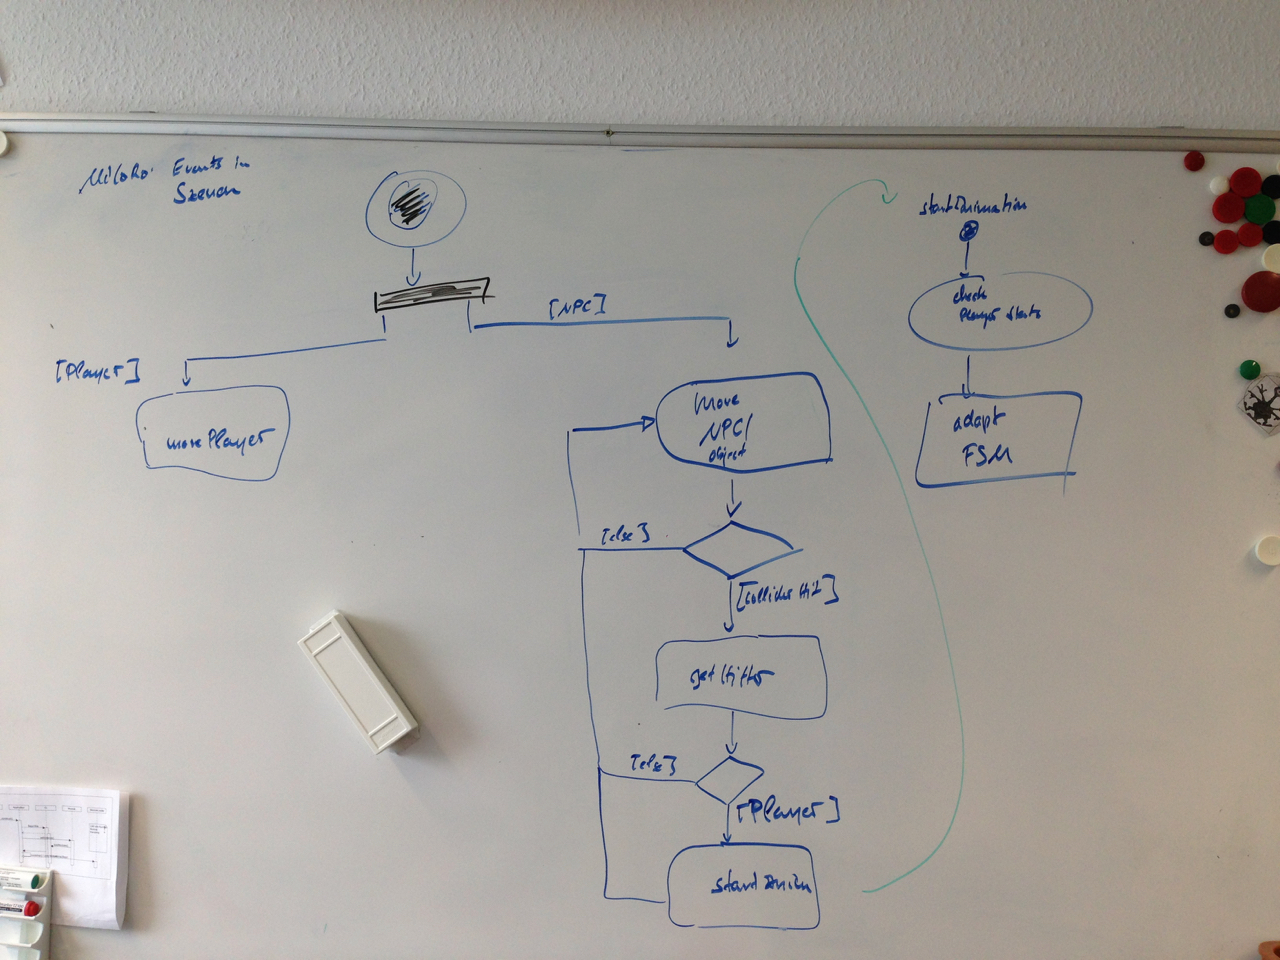 Events in
Szenen
[NPC]
[Player]
movePlayer
Move
NPC/
Object
[else]
[Collider Hit]
getHitter
[else]
[Player]
startAnim
startAnimation
check
Player states
adapt
FSM